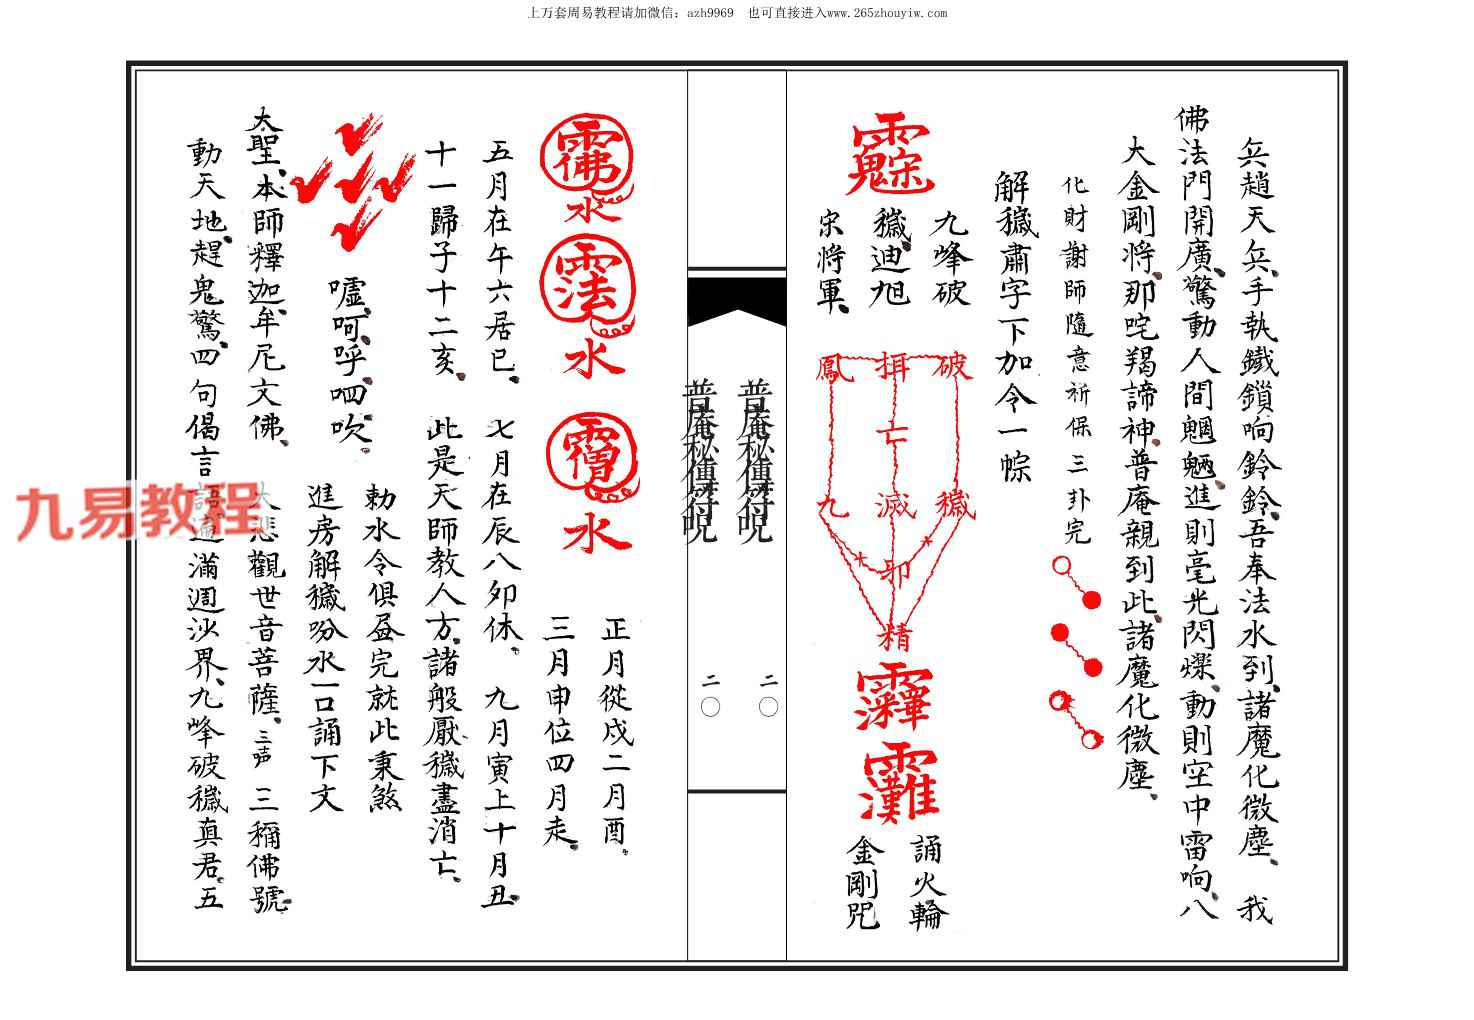 上万套周易教程请加微信：azh9969　也可直接进入www.265zhouyiw.com
兵趙天兵、手執鐵鎖响鈴鈴、吾奉法水到、諸魔化微塵、我
佛法門開廣、驚動人間魍魎、進則毫光閃爍、動則空中雷响、八
大金剛將、那咤羯諦神、普庵親到此、諸魔化微塵、
化財謝師隨意祈保三卦完
解穢肅字下加令一悰
九峰破
穢、迪旭
宋將軍、
破 揖 鳳
亡
穢 滅 九
邪
精
誦火輪
金剛咒
普庵秘傳符咒
二〇
普庵秘傳符咒
二〇
佛水
法水
僧水
正月從戍二月酉、
三月申位四月走、
五月在午六居巳、七月在辰八夘休、九月寅上十月丑、
十一歸子十二亥、此是天師教人方、諸般厭穢盡消亡、
勅水令俱益完就此秉煞
噓、呵、呼、呬、吹、
進房解穢吩水一口誦下文
大聖、本師釋迦、牟尼文佛、大悲觀世音菩薩、三声 三稱佛號、
動天地、趕鬼驚、四句偈言語遍滿週沙界、九峰破穢真君、五
九易教程